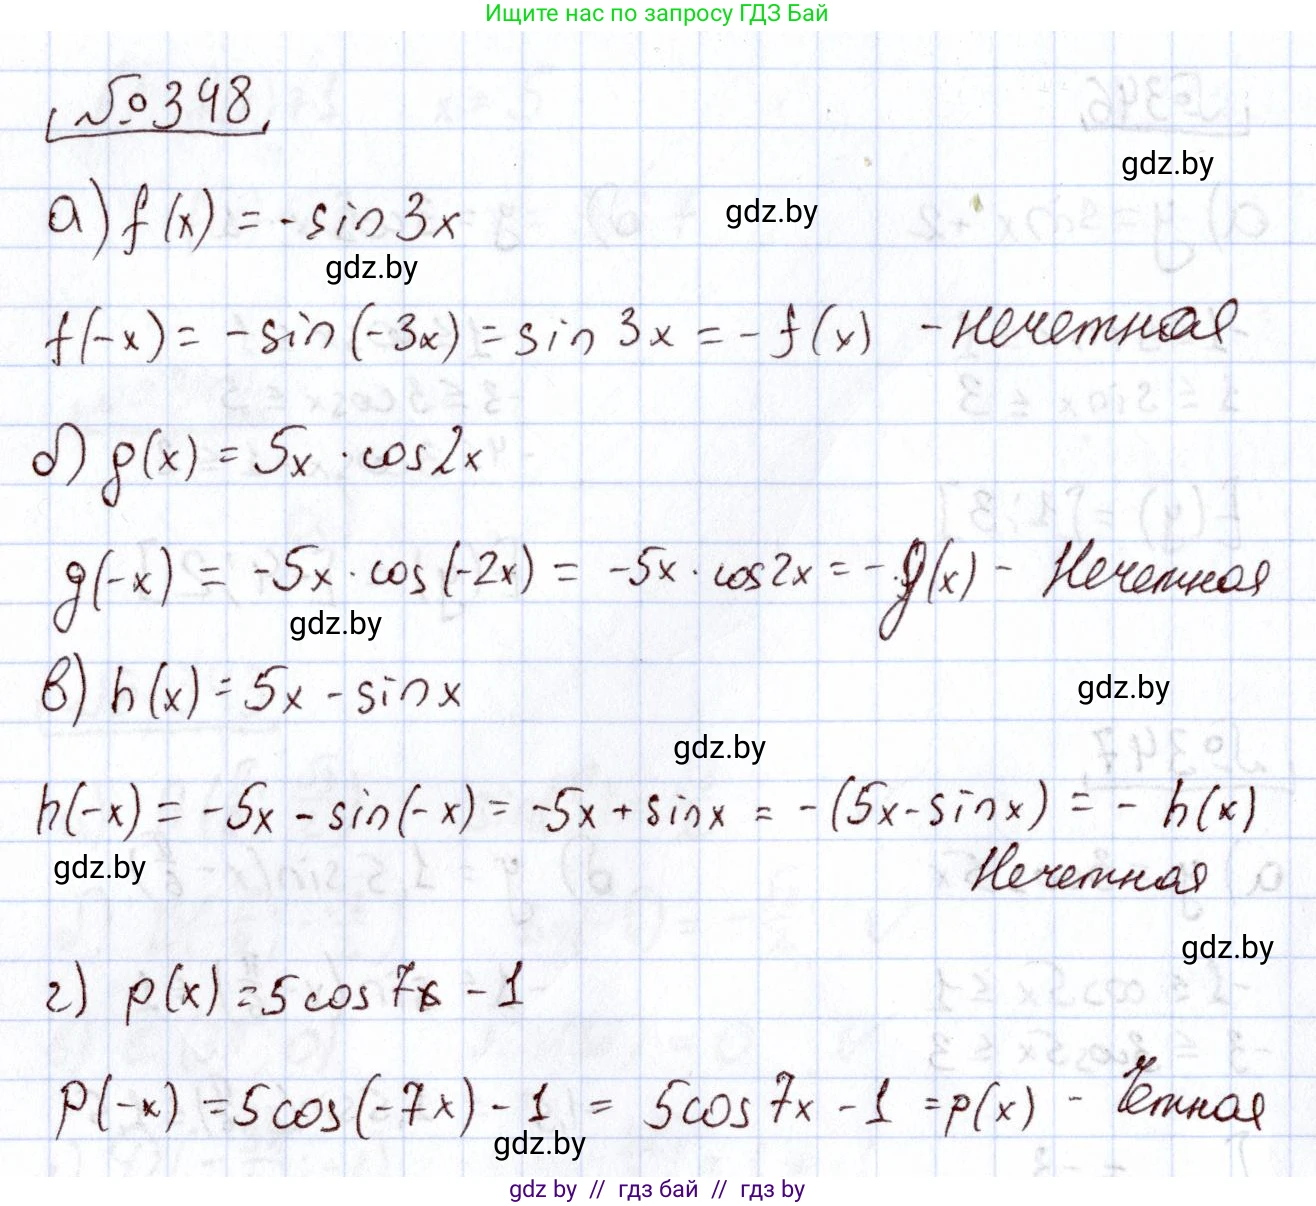 Ищите нас по запросу ГДЗ Бай
№348
gdz.by
а) f(x) = -sin3x
gdz.by
gdz.by
f(-x) = -sin(-3x) = sin 3x = -f(x) - нечетная
б) g(x) = 5x · cos2x
g(-x) = -5x · cos(-2x) = -5x · cos2x = -g(x) - Нечетная
gdz.by
в) h(x) = 5x - sin x
gdz.by
gdz.by
h(-x) = -5x - sin(-x) = -5x + sin x = -(5x - sin x) = - h(x)
gdz.by
Нечетная
gdz.by
г) p(x) = 5cos7x - 1
p(-x) = 5cos(-7x) - 1 = 5cos7x - 1 = p(x) - Четная
gdz.by
gdz by // гдз бай // гдз by